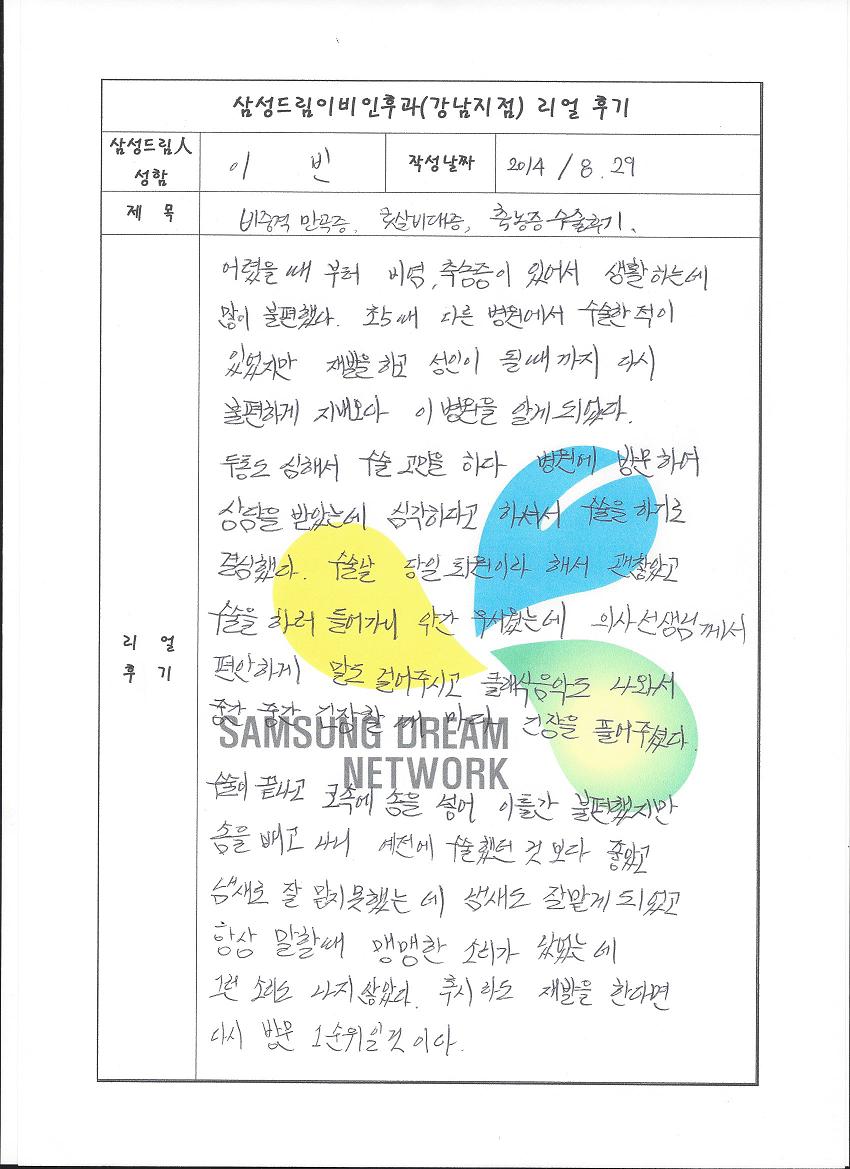 삼성드림이비인후과(강남지점) 리얼 후기
삼성드림人
성함
이 빈
작성날짜
2014 / 8. 29
제 목
비중격 만곡증, 콧살비대증, 축농증 수술후기.
리 얼
후 기
어렸을 때 부터 비염, 축농증이 있어서 생활하는데
많이 불편했다. 초5때 다른 병원에서 수술한 적이
있었지만 재발을 하고 성인이 될때 까지 다시
불편하게 지내오다 이 병원을 알게 되었다.
두통도 심해서 수술 고민을 하다 병원에 방문하여
상담을 받았는데 심각하다고 하셔서 수술을 하기로
결심했다. 수술날 당일 퇴원이라 해서 괜찮았고
수술을 하러 들어가니 약간 무서웠는데 의사선생님께서
편안하게 말도 걸어주시고 클래식음악도 나와서
중간 중간 긴장할 때 마다 긴장을 풀어주셨다.
SAMSUNG DREAM
NETWORK
수술이 끝나고 코속에 솜을 넣어 이틀간 불편했지만
솜을 빼고 나니 예전에 수술했던 것 보다 좋았고
냄새도 잘 맡지못했는 데 냄새도 잘맡게 되었고
항상 말할때 맹맹한 소리가 났었는 데
그런 소리도 나지 않았다. 혹시라도 재발을 한다면
다시 방문 1순위일것 이다.